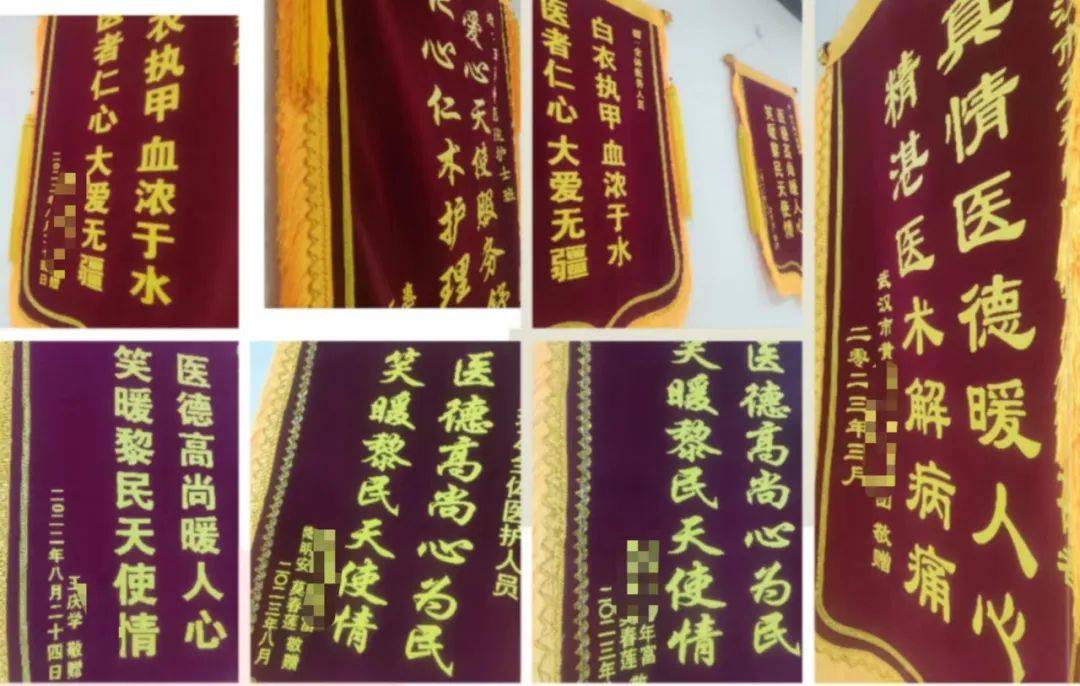 衣执甲 血浓于水
医者仁心 大爱无疆
院护士班
爱心天使服务
心仁术护理
全体医务人员
白衣执甲 血浓于水
医者仁心 大爱无疆
医德高尚暖人心
笑暖黎民天使情
真情医德暖人心
精湛医术解病痛
武汉市黄
敬赠
二零二三年三月
医德高尚暖人心
笑暖黎民天使情
王庆学 敬赠
二〇二二年八月二十四日
体医护人员
医德高尚心为民
笑暖黎民天使情
安 莫春莲 敬赠
二〇二三年八月
医德高尚心为民
笑暖黎民天使情
年富
春莲
二〇二三年